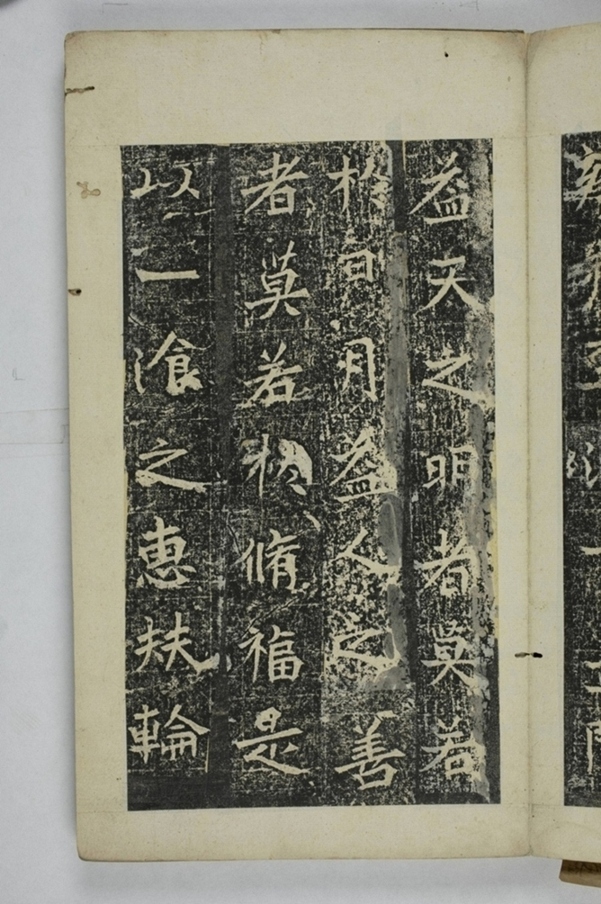 益天之明者莫若
於日月益人之善
者莫若於脩福是
以一飡之惠扶輪